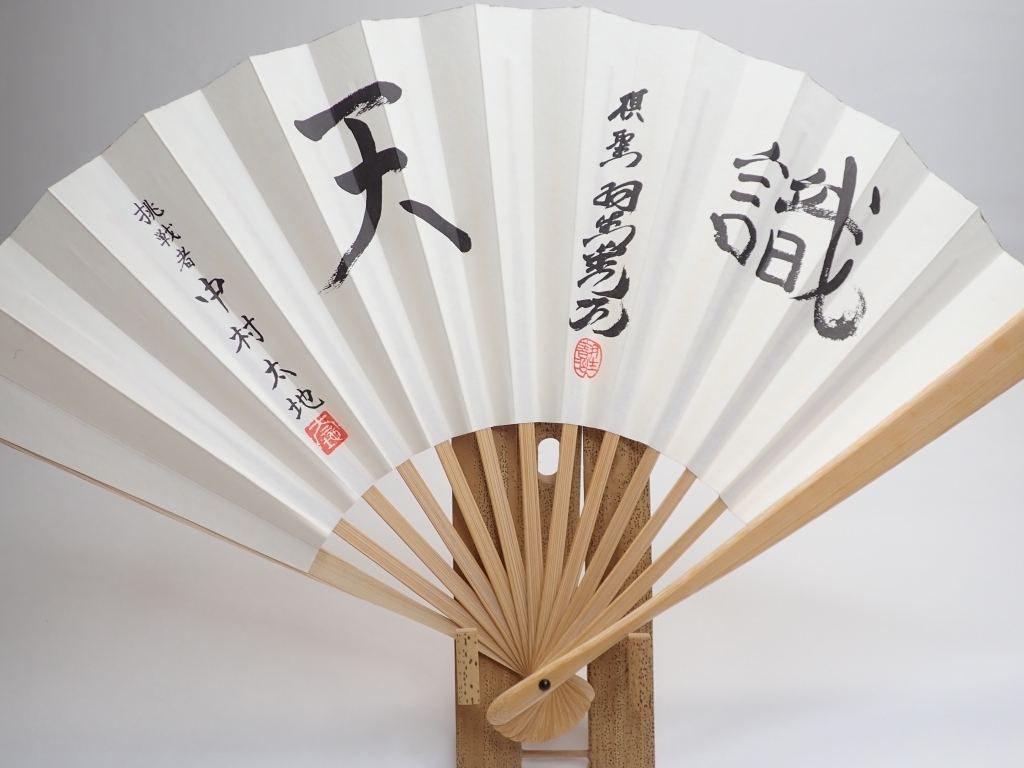 識
棋聖 羽生善治
天
挑戦者 中村太地